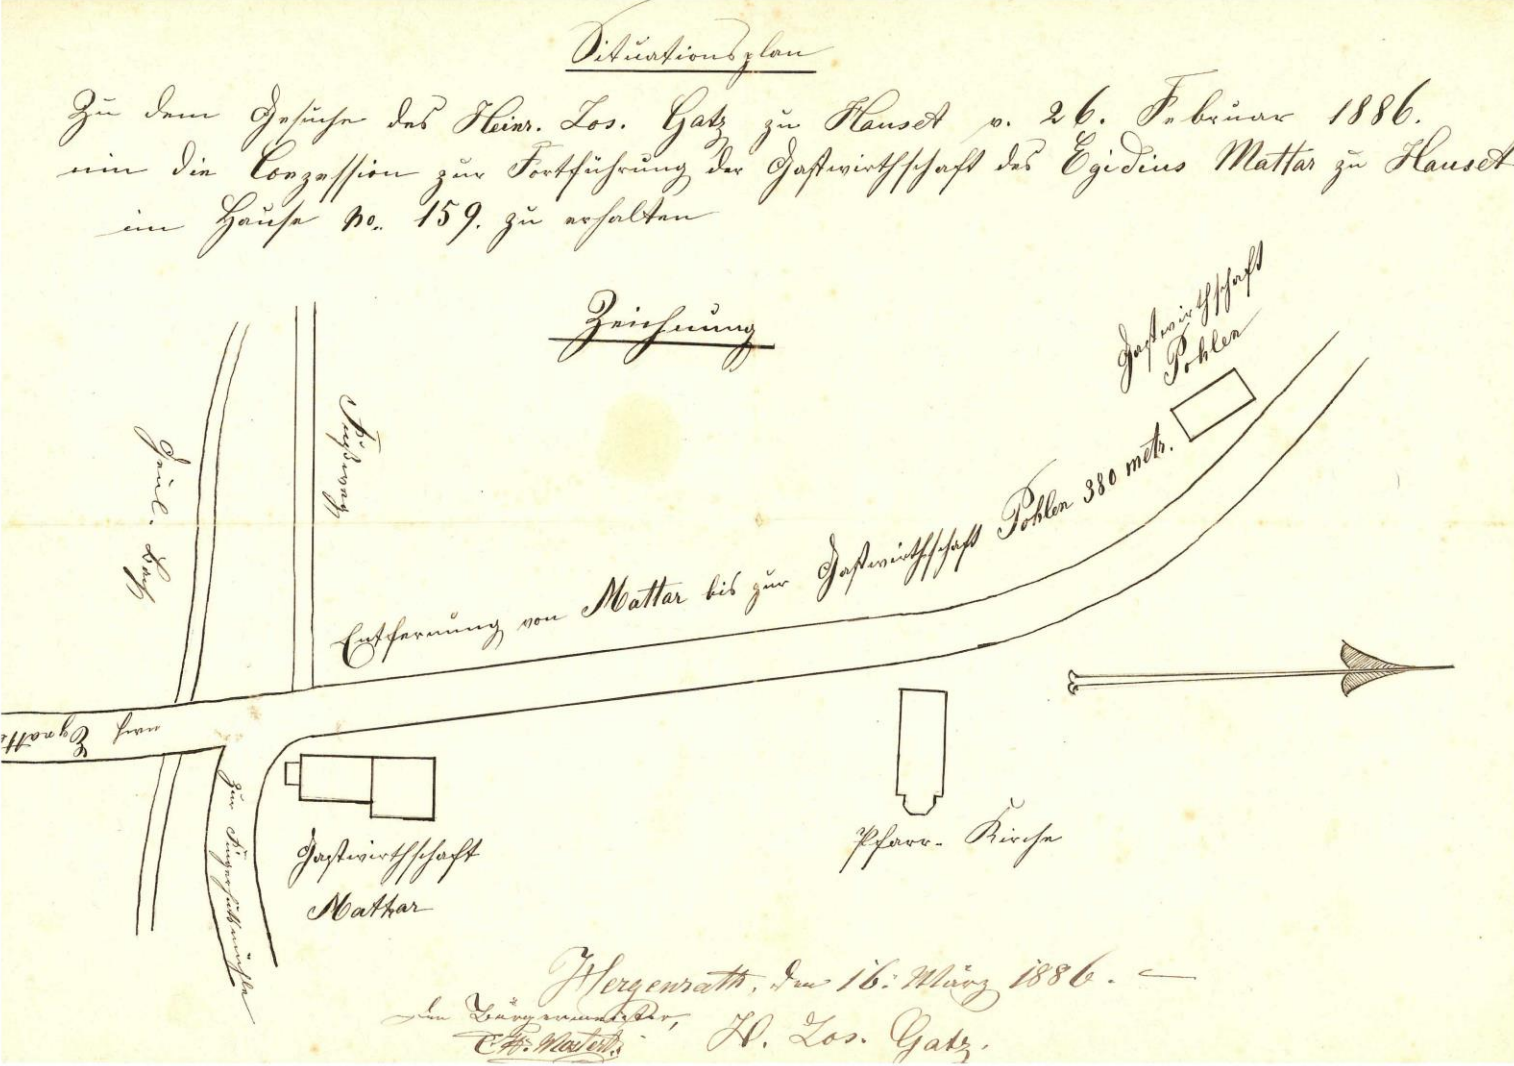 Situationsplan
Zu dem Gesuche des Heinr. Jos. Gatz zu Hauset v. 26. Februar 1886.
um die Conzession zur Fortführung der Gastwirthschaft des Egidius Mattar zu Hauset
im Hause No. 159. zu erhalten
Zeichnung
Gastwirthschaft
Pohlen
Fußweg
Geul-Bach
Entfernung von Mattar bis zur Gastwirthschaft Pohlen 380 metr.
nach Eynatten
zur
Gastwirthschaft
Mattar
Pfarr-Kirche
Hergenrath, den 16: März 1886.
Der Bürgermeister,
H. Jos. Gatz.